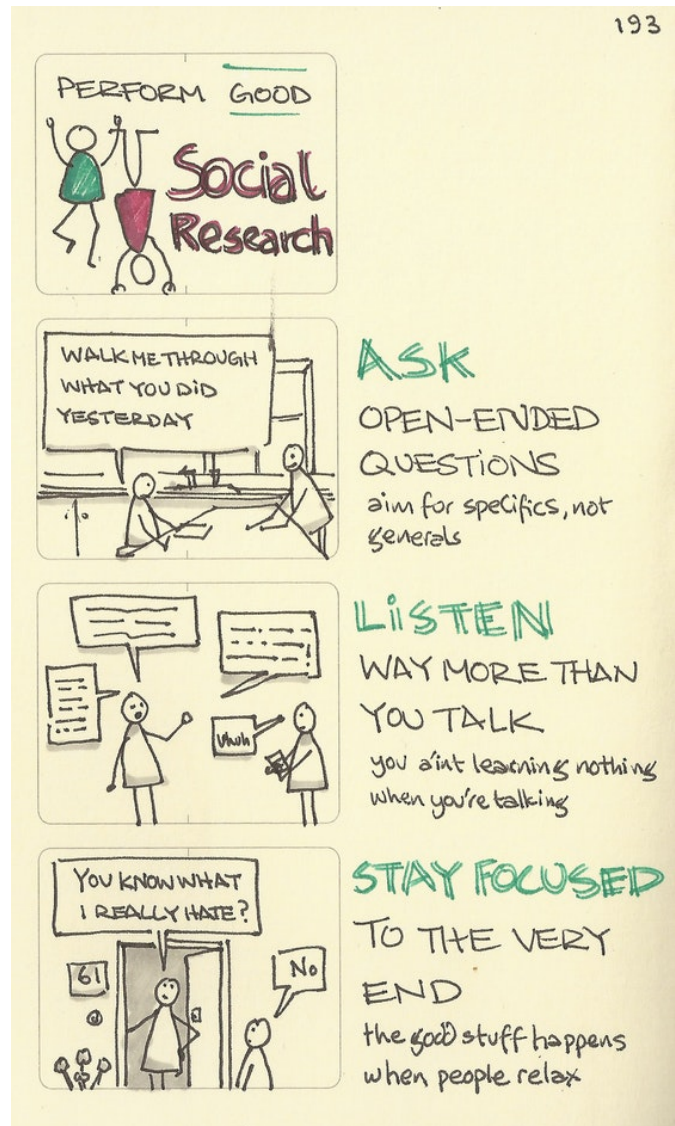 193
PERFORM GOOD
Social
Research
WALK ME THROUGH
WHAT YOU DID
YESTERDAY
ASK
OPEN-ENDED
QUESTIONS
aim for specifics, not
generals
Uhuh
LISTEN
WAY MORE THAN
YOU TALK
you a'int learning nothing
when you're talking
YOU KNOW WHAT
I REALLY HATE?
61
No
STAY FOCUSED
TO THE VERY
END
the good stuff happens
when people relax